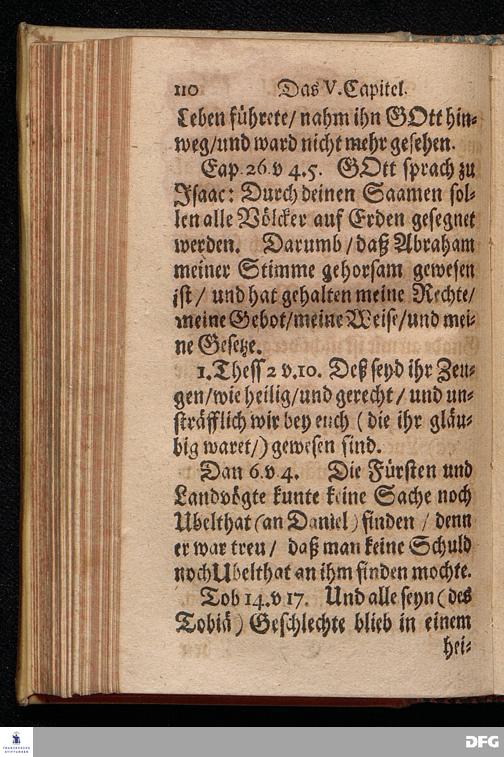 110 Das V. Capitel.
Leben führete/ nahm ihn GOtt hin⸗
weg/und ward nicht mehr gesehen.
Cap. 26. v 4. 5. GOtt sprach zu
Isaac: Durch deinen Saamen sol⸗
len alle Völcker auf Erden gesegnet
werden. Darumb / daß Abraham
meiner Stimme gehorsam gewesen
ist / und hat gehalten meine Rechte/
meine Gebot/meine Weise/und mei⸗
ne Gesetze.
1. Thess 2 v. 10. Deß seyd ihr Zeu⸗
gen/wie heilig/und gerecht / und un⸗
sträfflich wir bey euch ( die ihr gläu⸗
big waret/) gewesen sind.
Dan 6. v 4. Die Fürsten und
Landvögte kunte keine Sache noch
Ubelthat (an Daniel) finden / denn
er war treu / daß man keine Schuld
noch Ubelthat an ihm finden mochte.
Tob 14. v 17. Und alle seyn (des
Tobiä) Geschlechte blieb in einem
hei⸗
FRANCKESCHE STIFTUNGEN
DFG